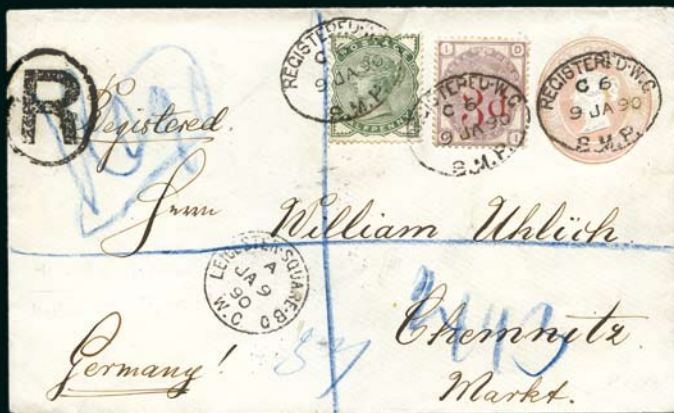 REGISTERED·W.C
C 6
9 JA 90
S.M.P.
POSTAGE
I D
3d
D I
REGISTERED·W.C
C 6
9 JA 90
S.M.P.
REGISTERED·W.C
C 6
9 JA 90
S.M.P.
R
Registered.
Herrn William Uhlich.
LEICESTER·SQUARE·B.O
W.C
A
JA 9
90
Chemnitz
Germany!
Markt.